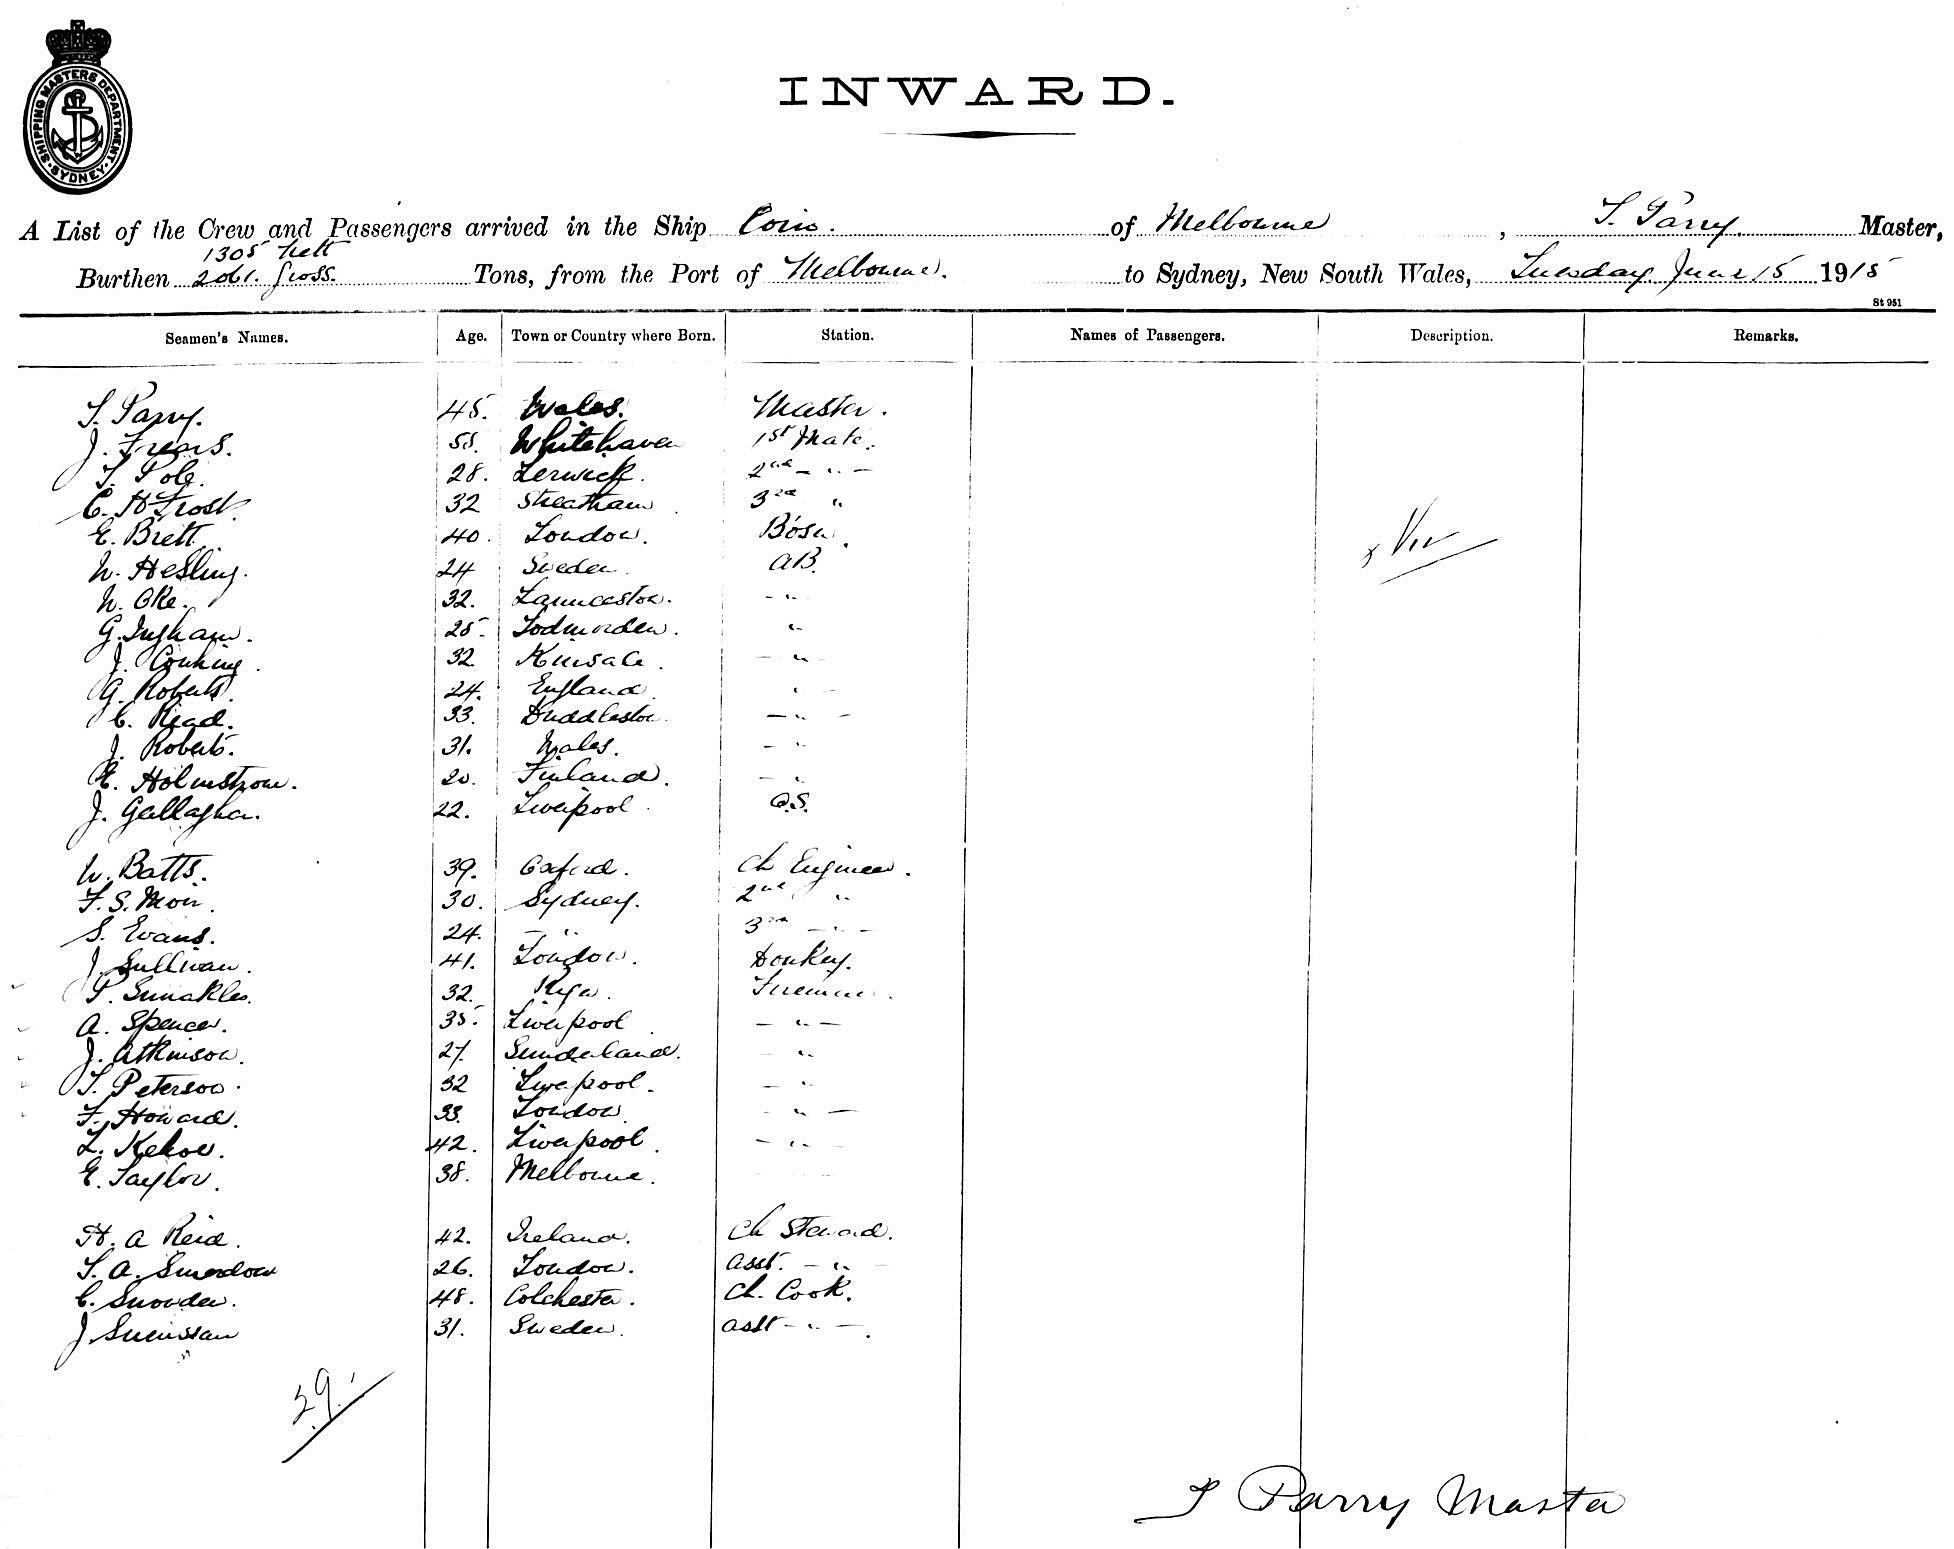 SHIPPING MASTERS DEPARTMENT. SYDNEY
INWARD.
A List of the Crew and Passengers arrived in the Ship of Melbourne, T. Parry. Master,
1305 Nett
Burthen 2061. Gross. Tons, from the Port of Melbourne. to Sydney, New South Wales, Tuesday June 15 1915
St 951
Seamen's Names. Age. Town or Country where Born. Station. Names of Passengers. Description. Remarks.
T. Parry. 45. Wales. Master.
J. Frears. 55. Whitehaven 1st Mate.
T. Pole. 28. Lerwick. 2nd - " -
C. H Frost. 32 Streatham 3rd "
E. Brett. 40. London. Bosn.
W. Hesling. 24 Sweden. AB.
W. Oke. 32. Launceston. - " -
G. Ingham. 25. Todmorden. "
J. 32 Kinsale. - " -
G. Roberts. 24. England. " -
C. Read. 33. Duddleston. - " -
J. Roberts. 31. Wales. - "
E. Holmstrom. 20. Finland. - "
J. Gallagher. 22. Liverpool. O.S.
W. Batts. 39. Oxford. Ch Engineer.
F. S. Moir. 30. Sydney. 2nd "
S. Evans. 24. - " 3rd - " -
J. Sullivan. 41. London. Donkey.
P. 32. Riga. Fireman.
A. Spencer. 35. Liverpool - " -
J. Atkinson. 27. Sunderland. - "
T. Peterson. 32 Liverpool. - "
F. Howard. 33. London - " -
L. Kehoe. 42. Liverpool. - " -
E. Taylor. 38. Melbourne.
H. A Reid. 42. Ireland. Ch Steward.
T. A. 26. London. Asst. - " -
C. Snowden. 48. Colchester. Ch. Cook.
J. 31. Sweden. Asst - " -
29.
T Parry Master